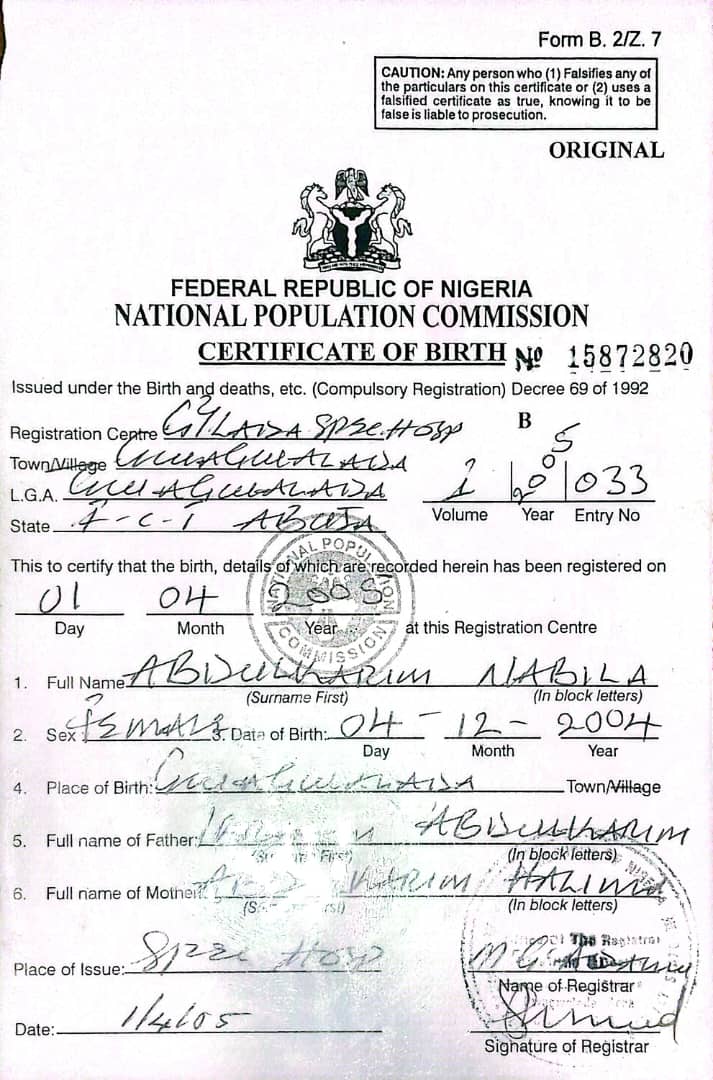 Form B. 2/Z. 7
CAUTION: Any person who (1) Falsifies any of
the particulars on this certificate or (2) uses a
falsified certificate as true, knowing it to be
false is liable to prosecution.
ORIGINAL
FEDERAL REPUBLIC OF NIGERIA
NATIONAL POPULATION COMMISSION
CERTIFICATE OF BIRTH No 15872820
Issued under the Birth and deaths, etc. (Compulsory Registration) Decree 69 of 1992
B
Registration Centre G/LADA SPEC. HOSP
Town/Village GWAGWALADA
L.G.A. GWAGWALADA 1 2005 033
Volume Year Entry No
State F-C-T ABUJA
This to certify that the birth, details of which are recorded herein has been registered on
01 04 2005
Day Month Year at this Registration Centre
NATIONAL POPULATION COMMISSION
1. Full Name ABDULKARIM NABILA
(Surname First) (In block letters)
2. Sex FEMALE 3. Date of Birth: 04 - 12 - 2004
Day Month Year
4. Place of Birth: GWAGWALADA Town/Village
5. Full name of Father: ABDULKARIM
(Surname First) (In block letters)
6. Full name of Mother: KARIM HALIMA
(In block letters)
Place of Issue: SPEC HOSP
The Registrar
Name of Registrar
Date: 1/4/05
Signature of Registrar